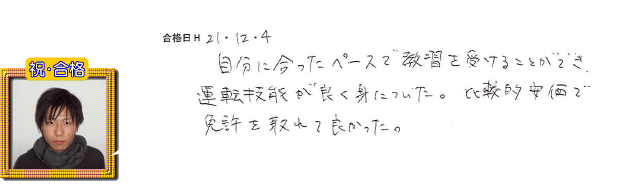 合格日H 21.12.4
祝・合格
自分に合ったペースで教習を受けることができ、
運転技能が良く身についた。比較的安価で
免許を取れて良かった。